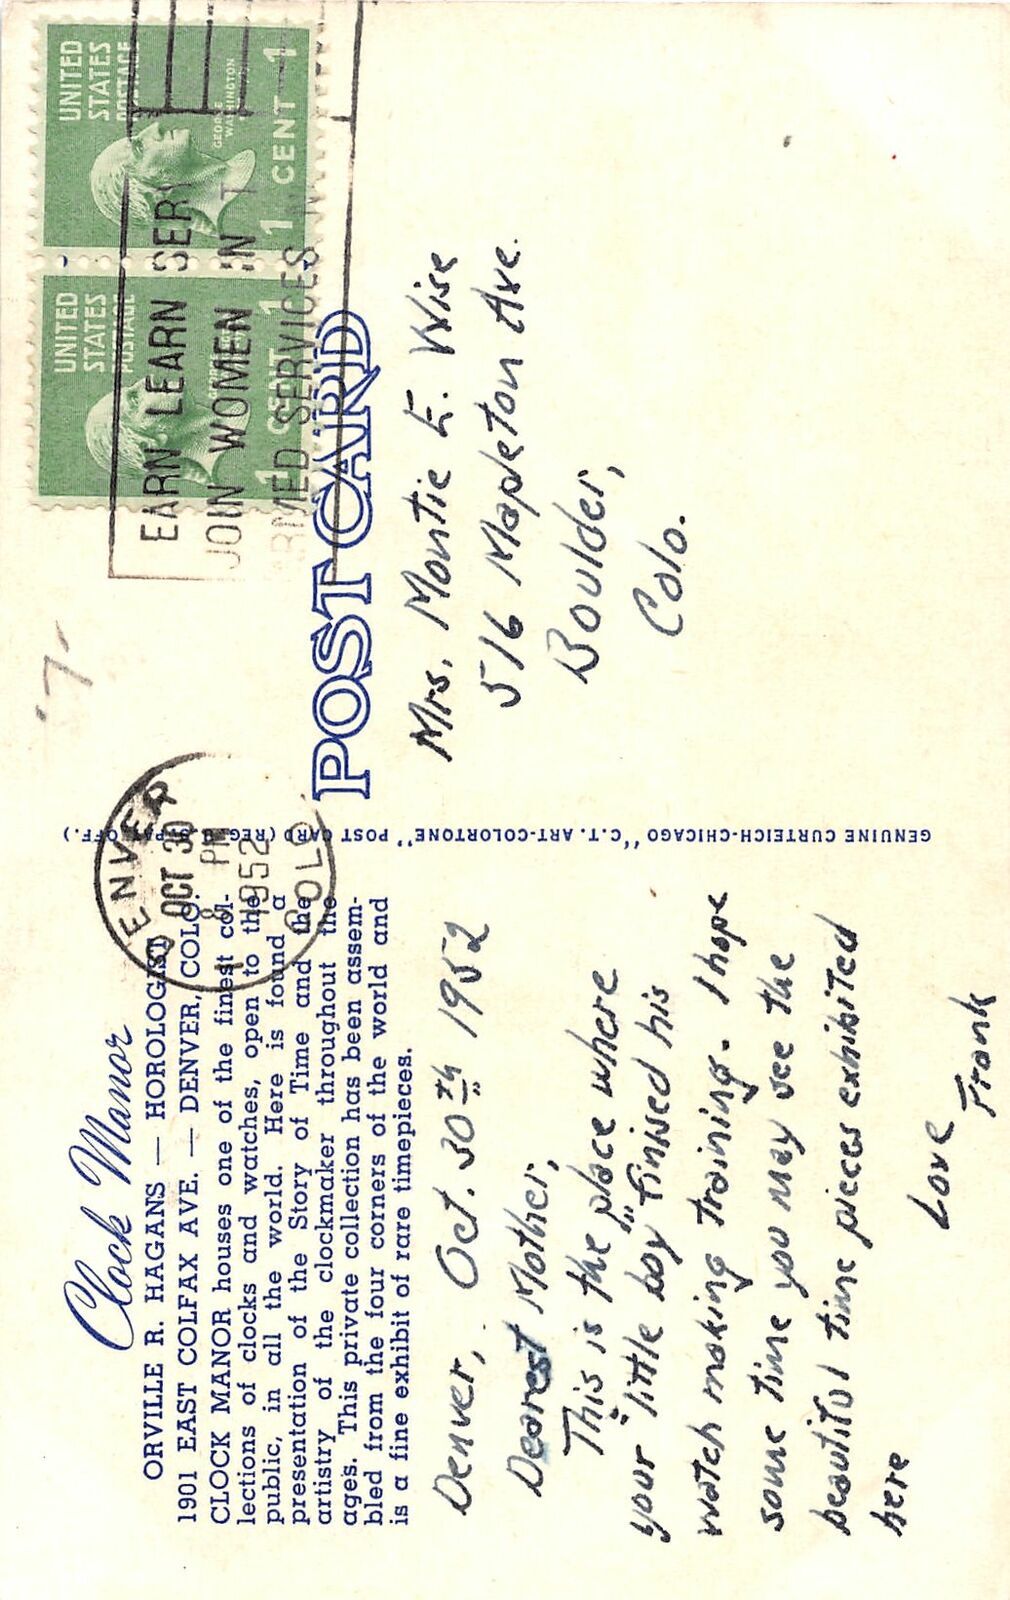 Clock Manor
ORVILLE R. HAGANS — HOROLOGIST
1901 EAST COLFAX AVE. — DENVER, COLO.
CLOCK MANOR houses one of the finest col-
lections of clocks and watches, open to the
public, in all the world. Here is found a
presentation of the Story of Time and the
artistry of the clockmaker throughout the
ages. This private collection has been assem-
bled from the four corners of the world and
is a fine exhibit of rare timepieces.
Denver, Oct. 30th 1952
Dearest Mother,
This is the place where
your "little boy" finised his
watch making training. I hope
some time you may see the
beautiful time pieces exhibited
here
Love
Frank
GENUINE CURTEICH-CHICAGO "C.T. ART-COLORTONE" POST CARD (REG. U.S. PAT. OFF.)
DENVER
OCT 30
8 PM
1952
COLO
7
UNITED
STATES
POSTAGE
1 CENT 1
UNITED
STATES
POSTAGE
GEORGE
WASHINGTON
1 CENT 1
EARN LEARN SERV
JOIN WOMEN IN T
RMED SERVICES N
POST CARD
Mrs. Montie E. Wise
516 Mapleton Ave.
Boulder,
Colo.